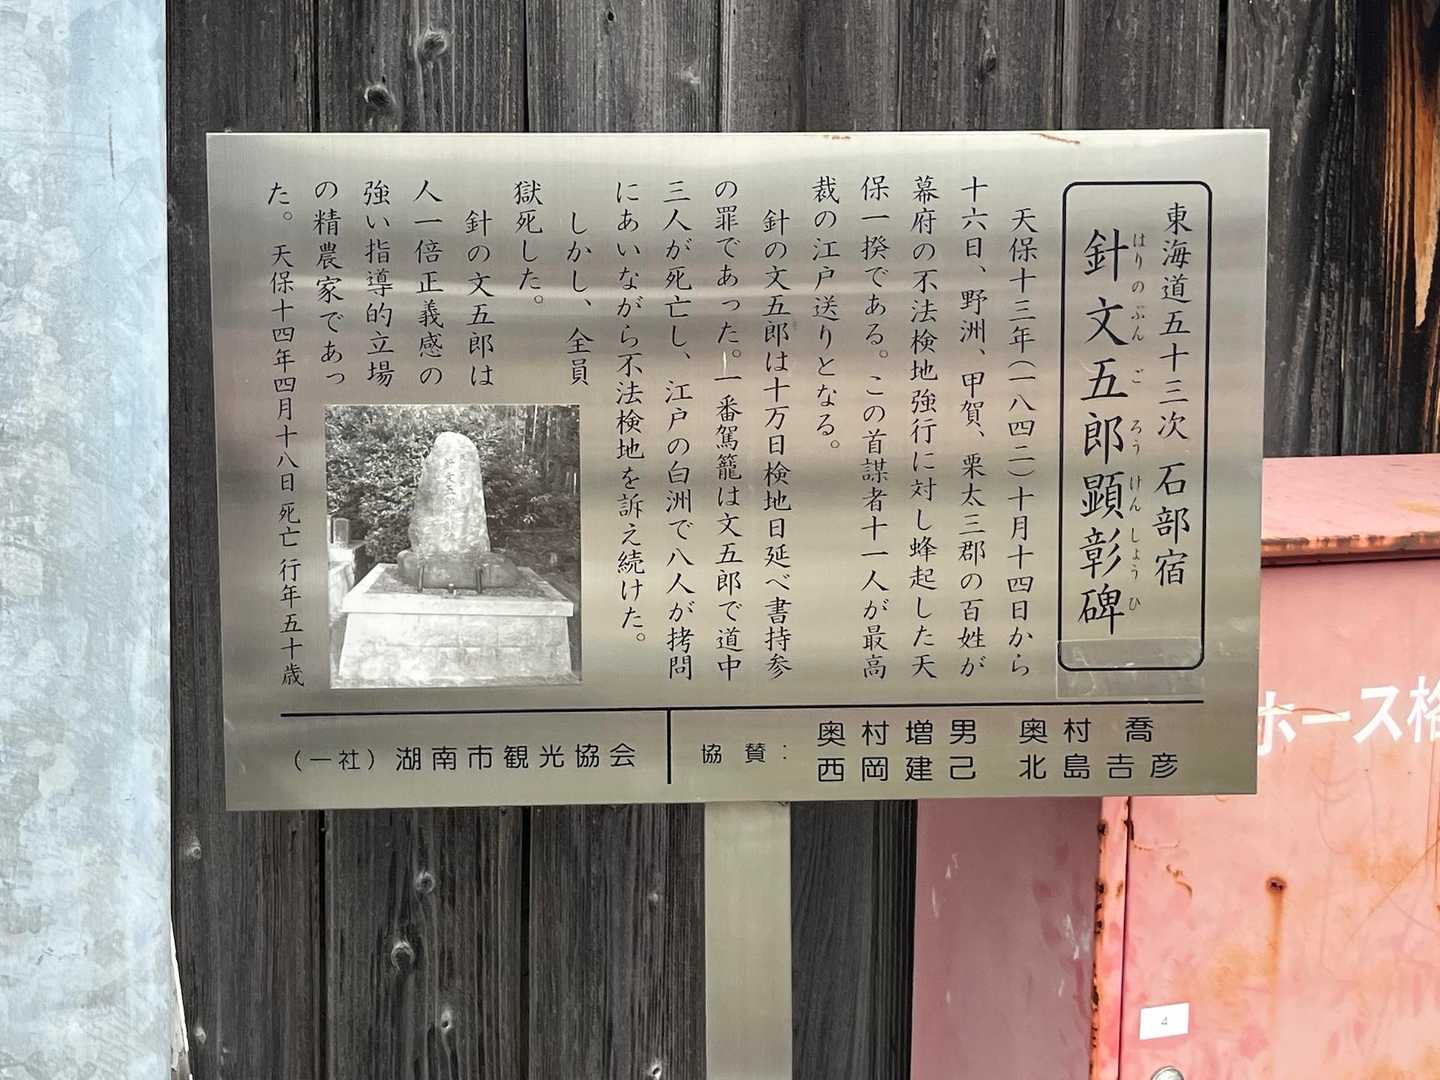 東海道五十三次 石部宿
針文五郎顕彰碑
はりのぶんごろうけんしょうひ
天保十三年(一八四二)十月十四日から
十六日、野洲、甲賀、栗太三郡の百姓が
幕府の不法検地強行に対し蜂起した天
保一揆である。この首謀者十一人が最高
裁の江戸送りとなる。
針の文五郎は十万日検地日延べ書持参
の罪であった。一番駕籠は文五郎で道中
三人が死亡し、江戸の白洲で八人が拷問
にあいながら不法検地を訴え続けた。
しかし、全員
獄死した。
針の文五郎は
人一倍正義感の
強い指導的立場
の精農家であっ
た。天保十四年四月十八日死亡 行年五十歳
(一社)湖南市観光協会
協賛:
奥村増男 奥村 喬
西岡建己 北島吉彦
ホース格
4